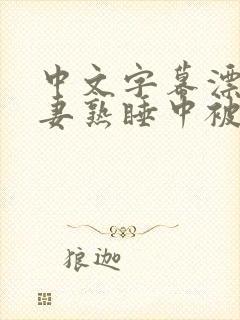 中文字幕漂
妻熟睡中被
狼迦